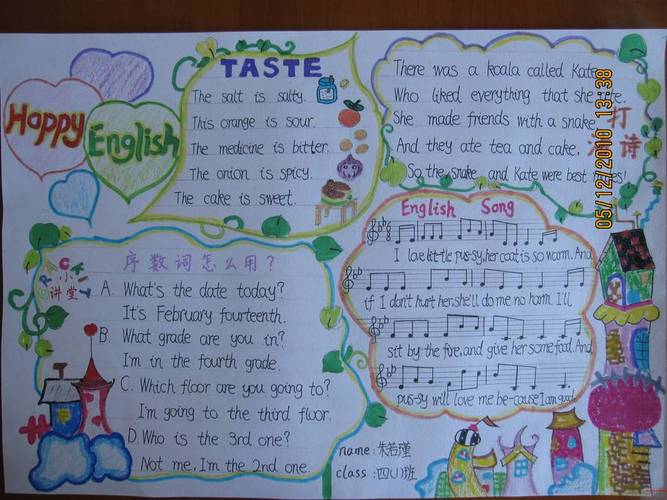 Happy
English
TASTE
The salt is salty.
This orange is sour.
The medicine is bitter.
The onion is spicy.
The cake is sweet.
There was a koala called Kate
Who liked everything that she ate.
She made friends with a snake
And they ate tea and cake,
So the snake and Kate were best
打
诗
05/12/2010 13:38
English Song
I love little pus-sy, her coat is so warm. And
if I don't hurt her, she'll do me no harm. I'll
sit by the fire, and give her some food. And
pus-sy will love me be-cause I am good.
小
讲堂
序数词怎么用？
A. What's the date today?
It's February fourteenth.
B. What grade are you in?
I'm in the fourth grade.
C. Which floor are you going to?
I'm going to the third floor.
D. Who is the 3rd one?
Not me, I'm the 2nd one.
name: 朱若瑾
class: 四(1)班